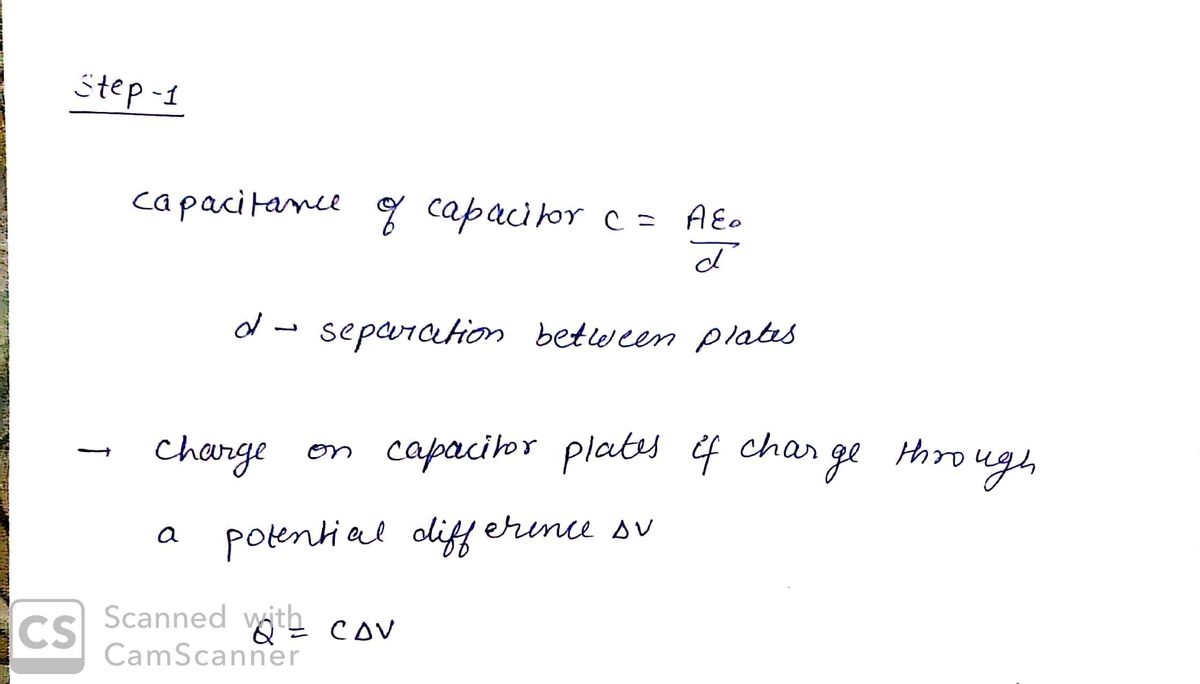 Step-1
capacitance of capacitor c = Aε₀
d
d → separation between plates
→ charge on capacitor plates if charge through
a potential difference ΔV
Q = CΔV
CS Scanned with
CamScanner